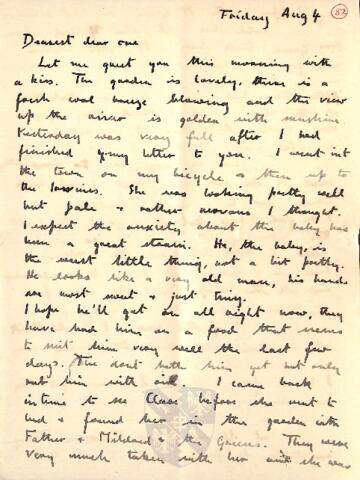 Friday Aug 4
82
Dearest dear one
Let me greet you this morning with
a kiss. The garden is lovely, there is a
fresh cool breeze blowing and the view
up the river is golden with sunshine
Yesterday was very full after I had
finished my letter to you. I went into
the town on my bicycle & then up to
the . She was looking pretty well
but pale & rather nervous I thought.
I expect the anxiety about the baby has
been a great strain. He, the baby, is
the weest little thing, not a bit pretty.
He looks like a very old man, his hands
are most sweet & just tiny.
I hope he'll get on all right now, they
have had him on a food that seems
to suit him very well the last few
days. They dont bath him yet but only
rub him with oil. I came back
in time to see Clare before she went to
bed & found her in the garden with
Father & Mildred & the Greens. They were
very much taken with her and she was